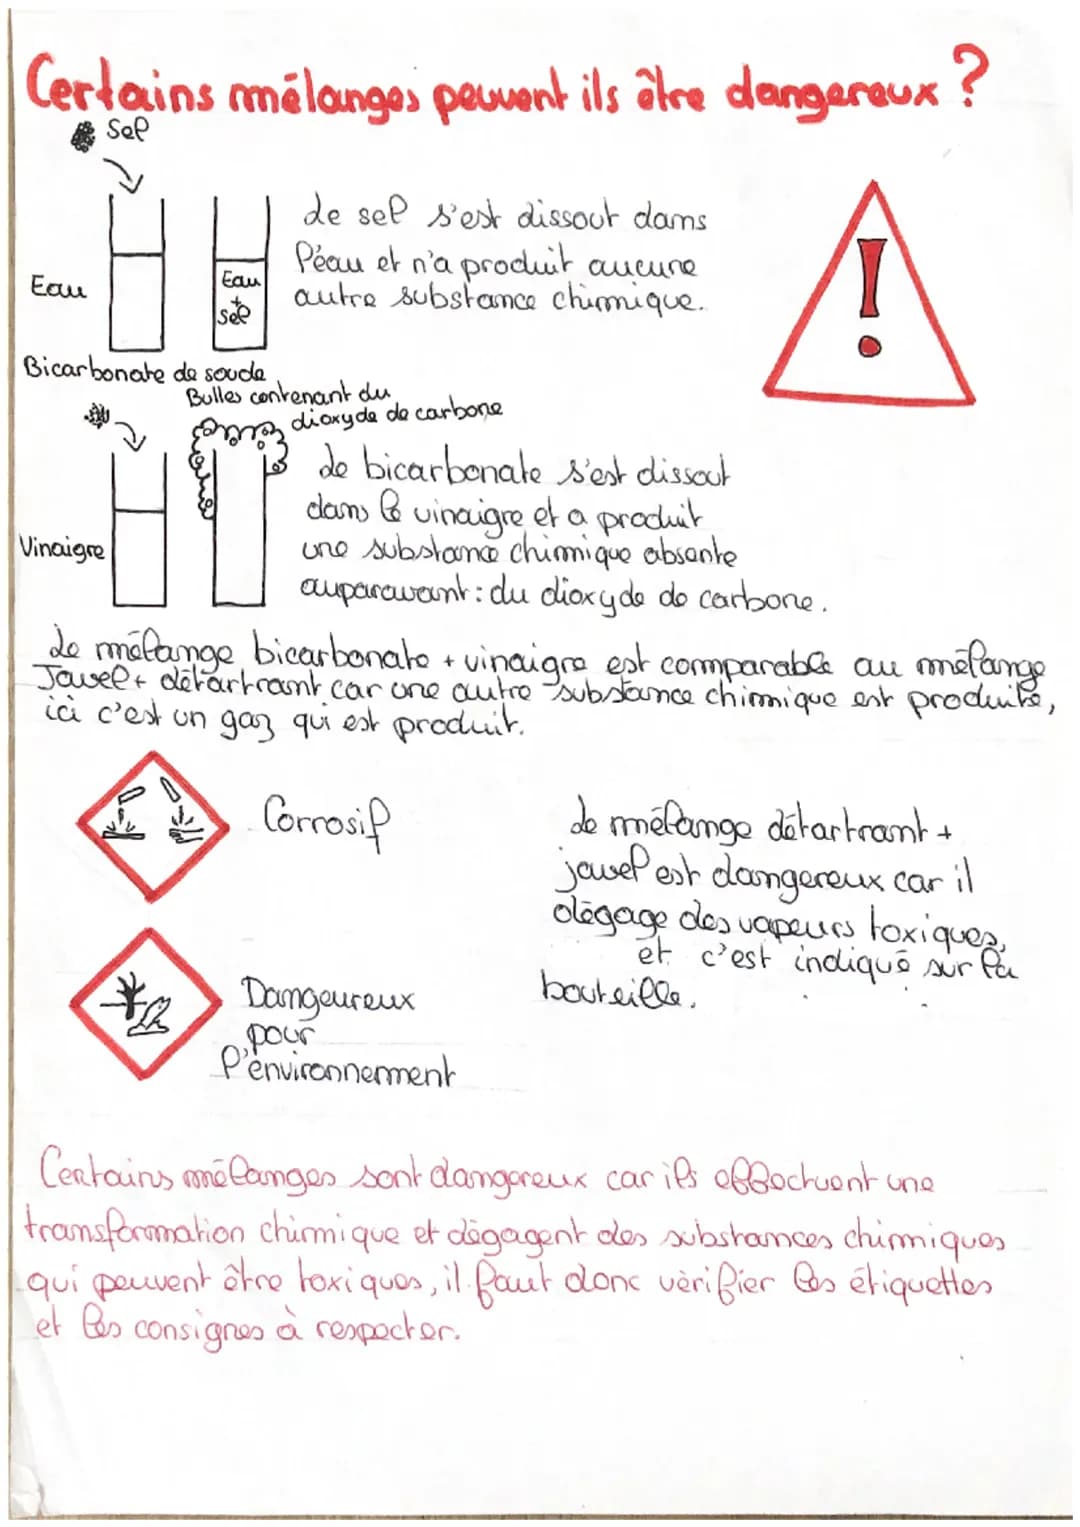 Certains mélanges peuvent ils être dangereux ?
Sel
Le sel s'est dissout dans
l'éau et n'a produit aucune
autre substance chimique.
Eau
Eau
+
sel
!
Bicarbonate de soude
Bulles contenant du
dioxyde de carbone
Le bicarbonate s'est dissout
dans le vinaigre et a produit
une substance chimique absente
auparavant : du dioxyde de carbone.
Vinaigre
Le mélange bicarbonate + vinaigre est comparable au mélange
Javel + détartrant car une autre substance chimique est produite,
ici c'est un gaz qui est produit.
Corrosif
Le mélange détartrant +
javel est dangereux car il
dégage des vapeurs toxiques,
et c'est indiqué sur la
bouteille.
Dangeureux
pour
l'environnement
Certains mélanges sont dangereux car ils effectuent une
transformation chimique et dégagent des substances chimiques
qui peuvent être toxiques, il faut donc vérifier les étiquettes
et les consignes à respecter.